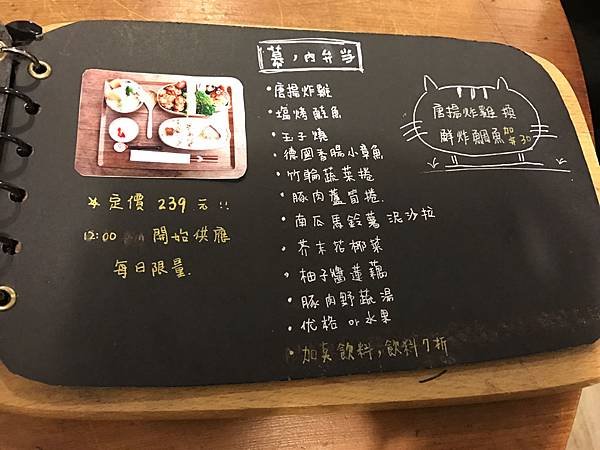 幕ノ內弁当
• 唐揚炸雞
• 塩烤鮭魚
• 玉子燒
• 德國香腸小章魚
• 竹輪蔬菜捲
• 豚肉蘆筍捲
• 南瓜馬鈴薯泥沙拉
• 芥末花椰菜
• 柚子醬蓮藕
• 豚肉野蔬湯
• 优格 or 水果
• 加點飲料，飲料7折
唐揚炸雞換
鮮炸鯛魚加$30
★定價 239元!!
12:00 開始供應
每日限量.